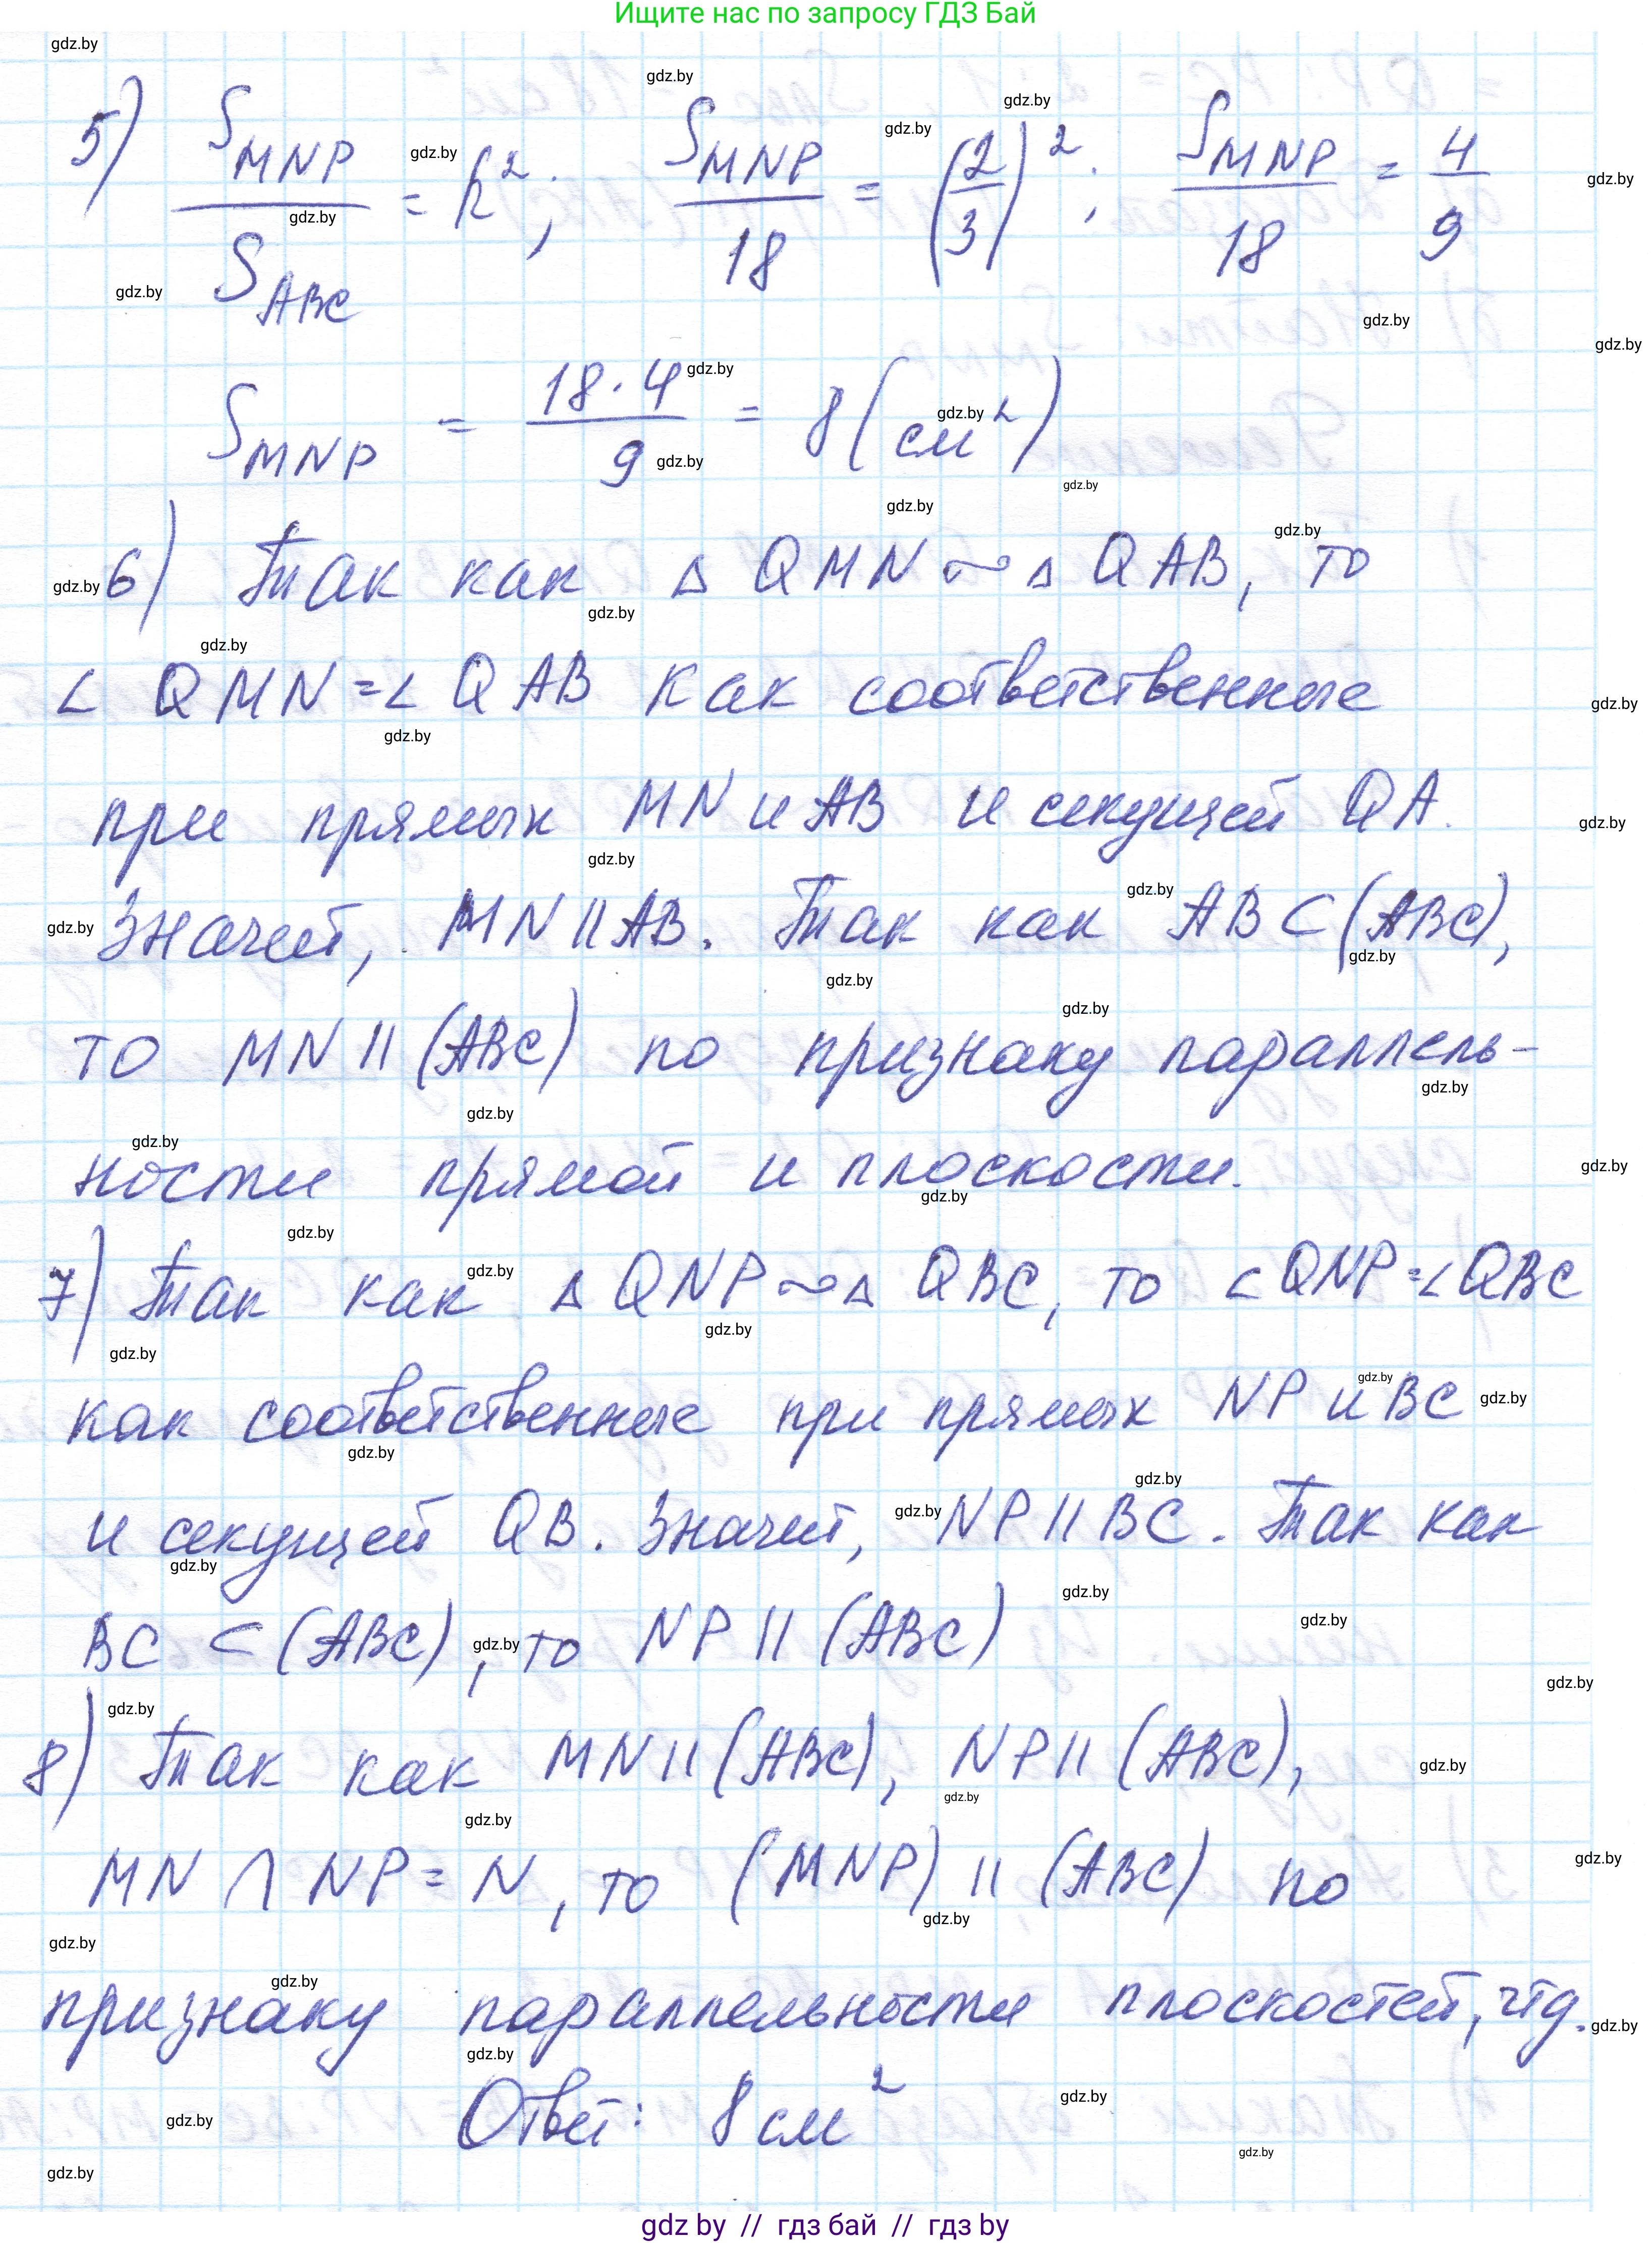 Ищите нас по запросу ГДЗ Бай
5) S_MNP / S_ABC = k²; S_MNP / 18 = (2/3)²; S_MNP / 18 = 4/9
S_MNP = 18·4 / 9 = 8 (см²)
6) Так как △ QMN ~ △ QAB, то
∠ QMN = ∠ QAB как соответственные
при прямых MN и AB и секущей QA.
Значит, MN || AB. Так как AB ⊂ (ABC),
то MN || (ABC) по признаку параллель-
ности прямой и плоскости.
7) Так как △ QNP ~ △ QBC, то ∠QNP = ∠QBC
как соответственные при прямых NP и BC
и секущей QB. Значит, NP || BC. Так как
BC ⊂ (ABC), то NP || (ABC)
8) Так как MN || (ABC), NP || (ABC),
MN ∩ NP = N, то (MNP) || (ABC) по
признаку параллельности плоскостей, чтд.
Ответ: 8 см²
gdz by // гдз бай // гдз by